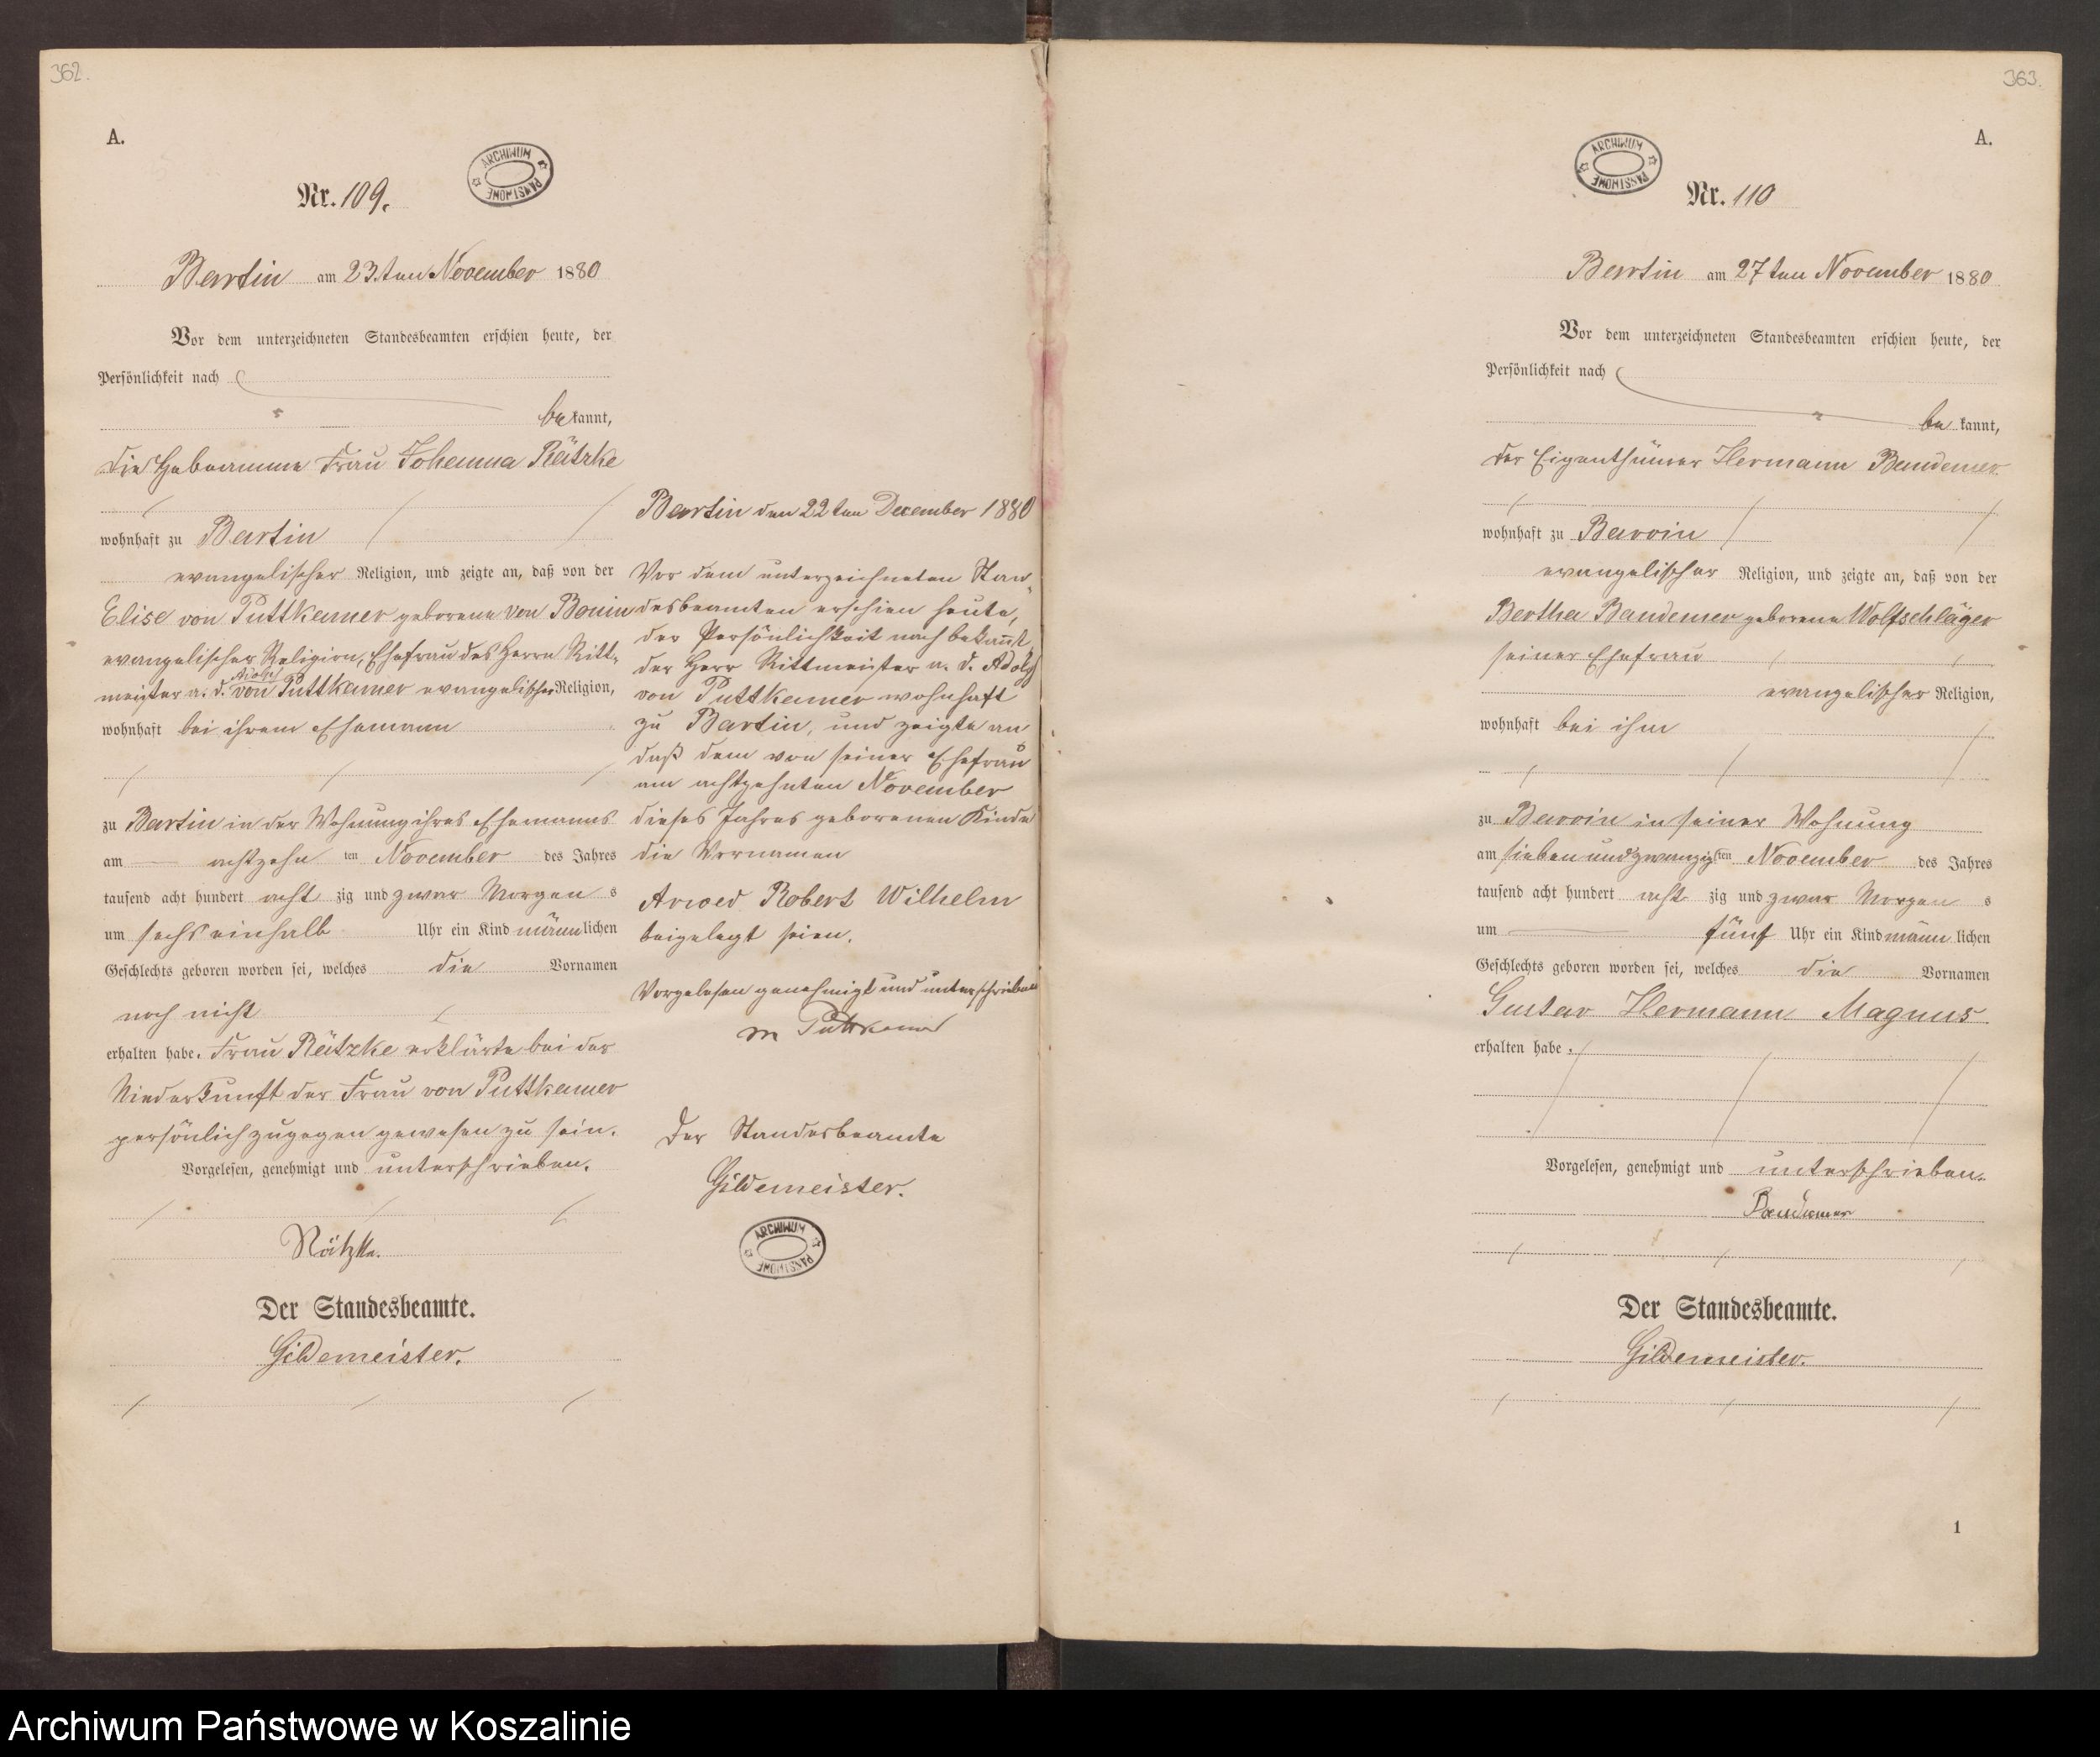 362.
A.
ARCHIWUM PAŃSTWOWE
Nr. 109.
Bartin am 23.ten November 1880
Vor dem unterzeichneten Standesbeamten erschien heute, der
Persönlichkeit nach
bekannt,
die Hebeamme Frau Johanna Rätzke
wohnhaft zu Bartin
evangelischer Religion, und zeigte an, daß von der
Elise von Puttkamer geborene von Bonin
evangelischer Religion, Ehefrau des Herrn Ritt-
meister a. D. Adolf von Puttkamer evangelischer Religion,
wohnhaft bei ihrem Ehemann
zu Bartin in der Wohnung ihres Ehemanns
am achtzehn ten November des Jahres
tausend acht hundert acht zig und zwar Morgen s
um sechs einhalb Uhr ein Kind männlichen
Geschlechts geboren worden sei, welches die Vornamen
noch nicht
erhalten habe. Frau Rätzke erklärte bei der
Niederkunft der Frau von Puttkamer
persönlich zugegen gewesen zu sein.
Vorgelesen, genehmigt und unterschrieben.
Rätzke.
Der Standesbeamte.
Gildemeister.
Bartin den 22ten December 1880
Vor dem unterzeichneten Stan-
desbeamten erschien heute,
der Persönlichkeit nach bekannt,
der Herr Rittmeister a. D. Adolf
von Puttkamer wohnhaft
zu Bartin, und zeigte an
daß dem von seiner Ehefrau
am achtzehnten November
dieses Jahres geborenen Kinde
die Vornamen
Arwed Robert Wilhelm
beigelegt seien.
Vorgelesen genehmigt und unterschrieben
Puttkamer
Der Standesbeamte
Gildemeister.
ARCHIWUM PAŃSTWOWE
363.
A.
ARCHIWUM PAŃSTWOWE
Nr. 110
Bartin am 27ten November 1880
Vor dem unterzeichneten Standesbeamten erschien heute, der
Persönlichkeit nach
be kannt,
der Eigenthümer Hermann Bandemer
wohnhaft zu Barvin
evangelischer Religion, und zeigte an, daß von der
Bertha Bandemer geborene Wolfschläger
seiner Ehefrau
evangelischer Religion,
wohnhaft bei ihm
zu Barvin in seiner Wohnung
am sieben und zwanzigsten November des Jahres
tausend acht hundert acht zig und zwar Morgen s
um fünf Uhr ein Kind männ lichen
Geschlechts geboren worden sei, welches die Vornamen
Gustav Hermann Magnus
erhalten habe.
Vorgelesen, genehmigt und unterschrieben.
Bandemer
Der Standesbeamte.
Gildemeister.
1
Archiwum Państwowe w Koszalinie